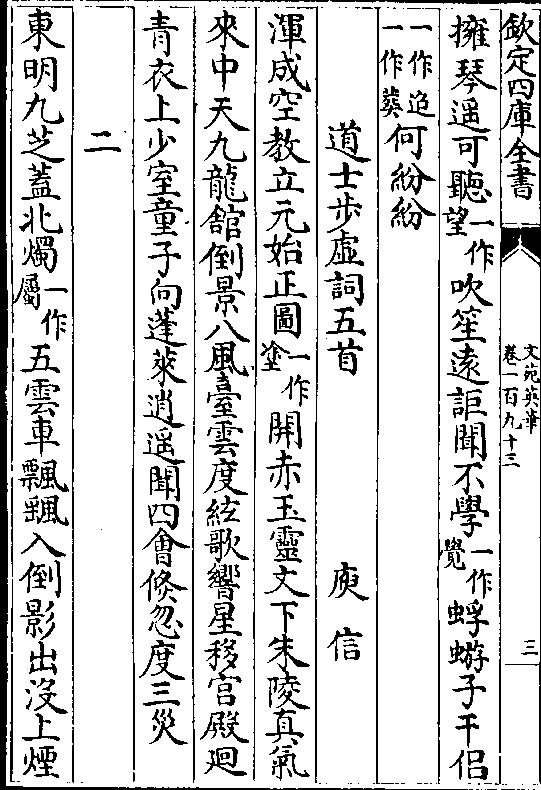 欽定四庫全書
文苑英華
卷一百九十三
三
擁琴遥可聽一作望吹笙遠詎聞不學一作覺蜉蝣子干侣
一作追一作葵何紛紛
道士步虛詞五首 庾信
渾成空教立元始正圖一作塗開赤玉靈文下朱陵真氣
來中天九龍舘倒景八風臺雲度絃歌響星移宮殿廻
青衣上少室童子向蓬萊逍遥聞四㑹倐忽度三災
二
東明九芝蓋北燭一作屬五雲車飄飄入倒影出沒上煙